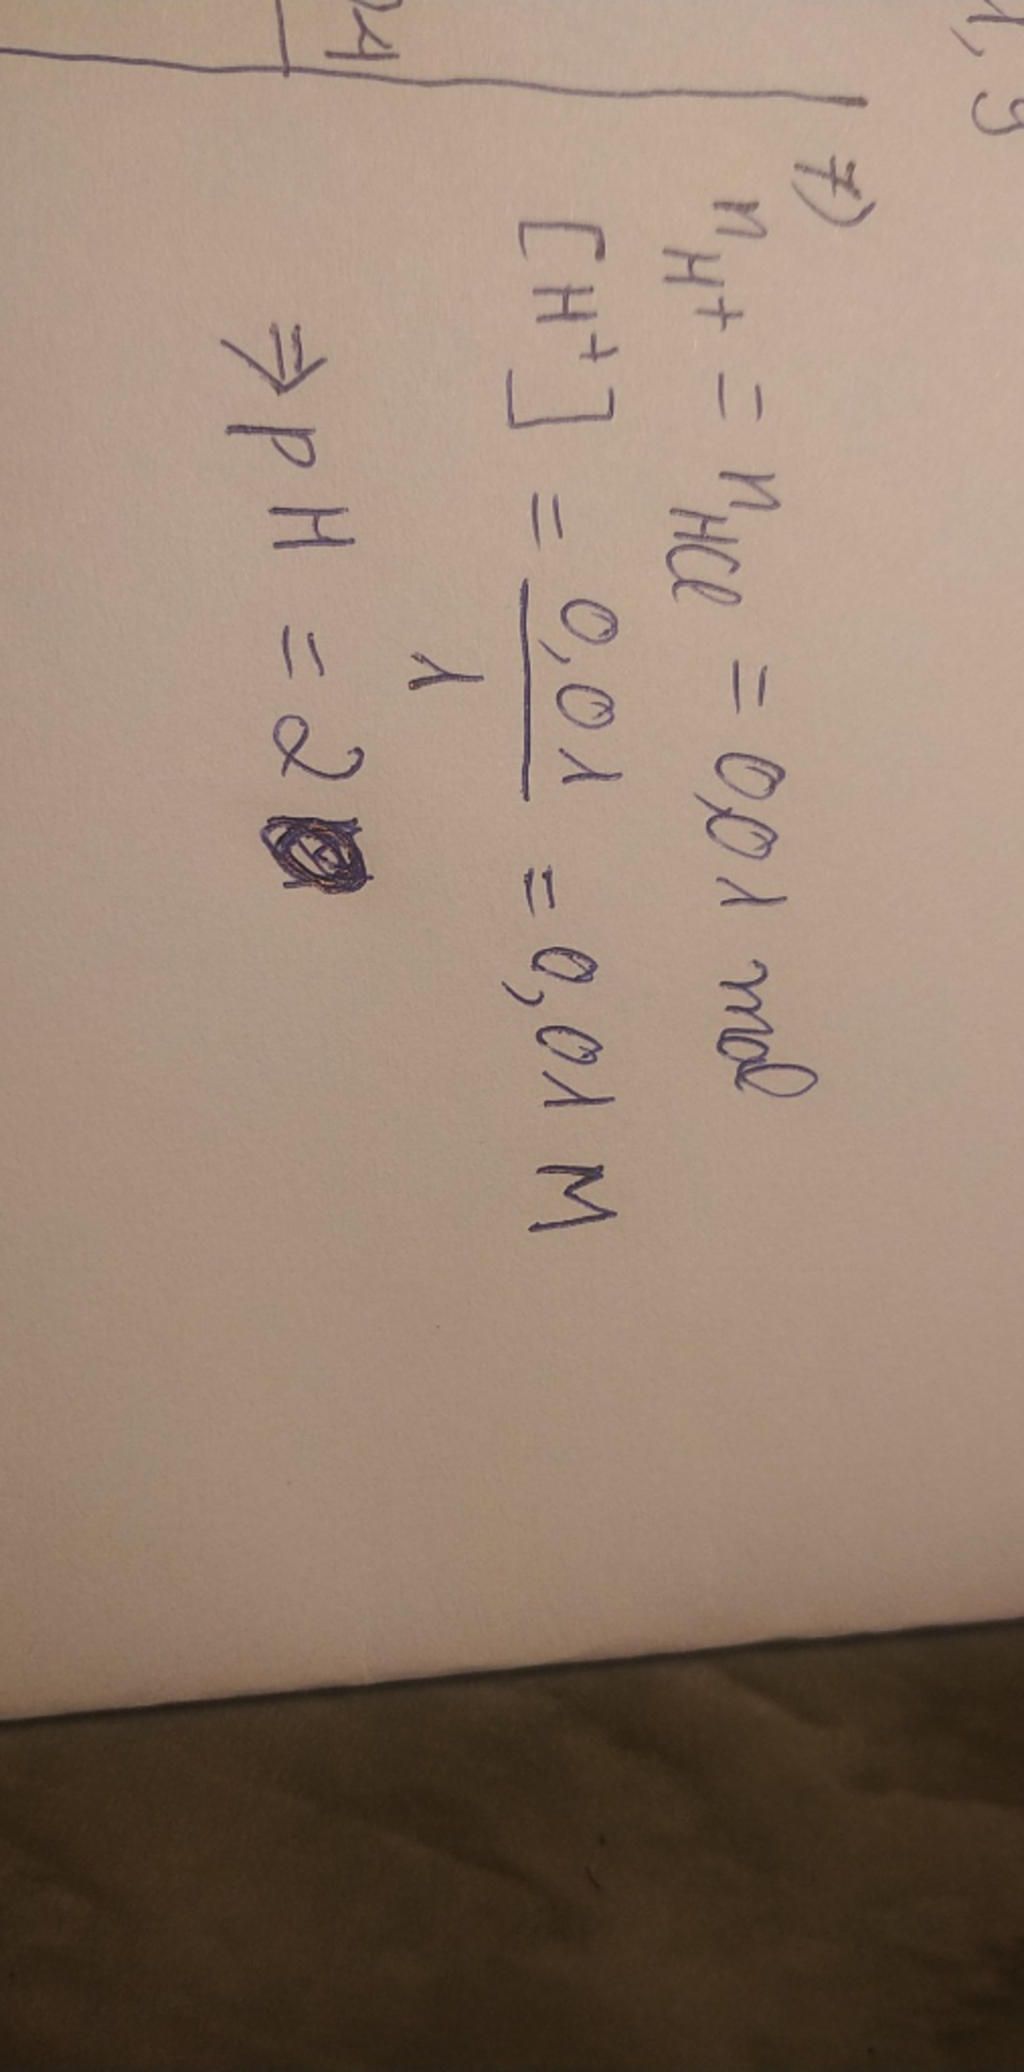 7)
n_H+ = n_HCl = 0,01 mol
[H+] = 0,01/1 = 0,01 M
⇒ pH = 2